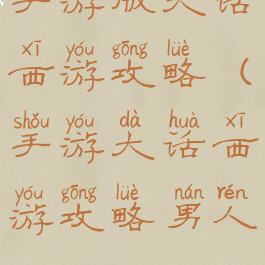 手游版大话
xī yóu gōng lüè
西游攻略（
shǒu yóu dà huà xī
手游大话西
yóu gōng lüè nán rén
游攻略男人